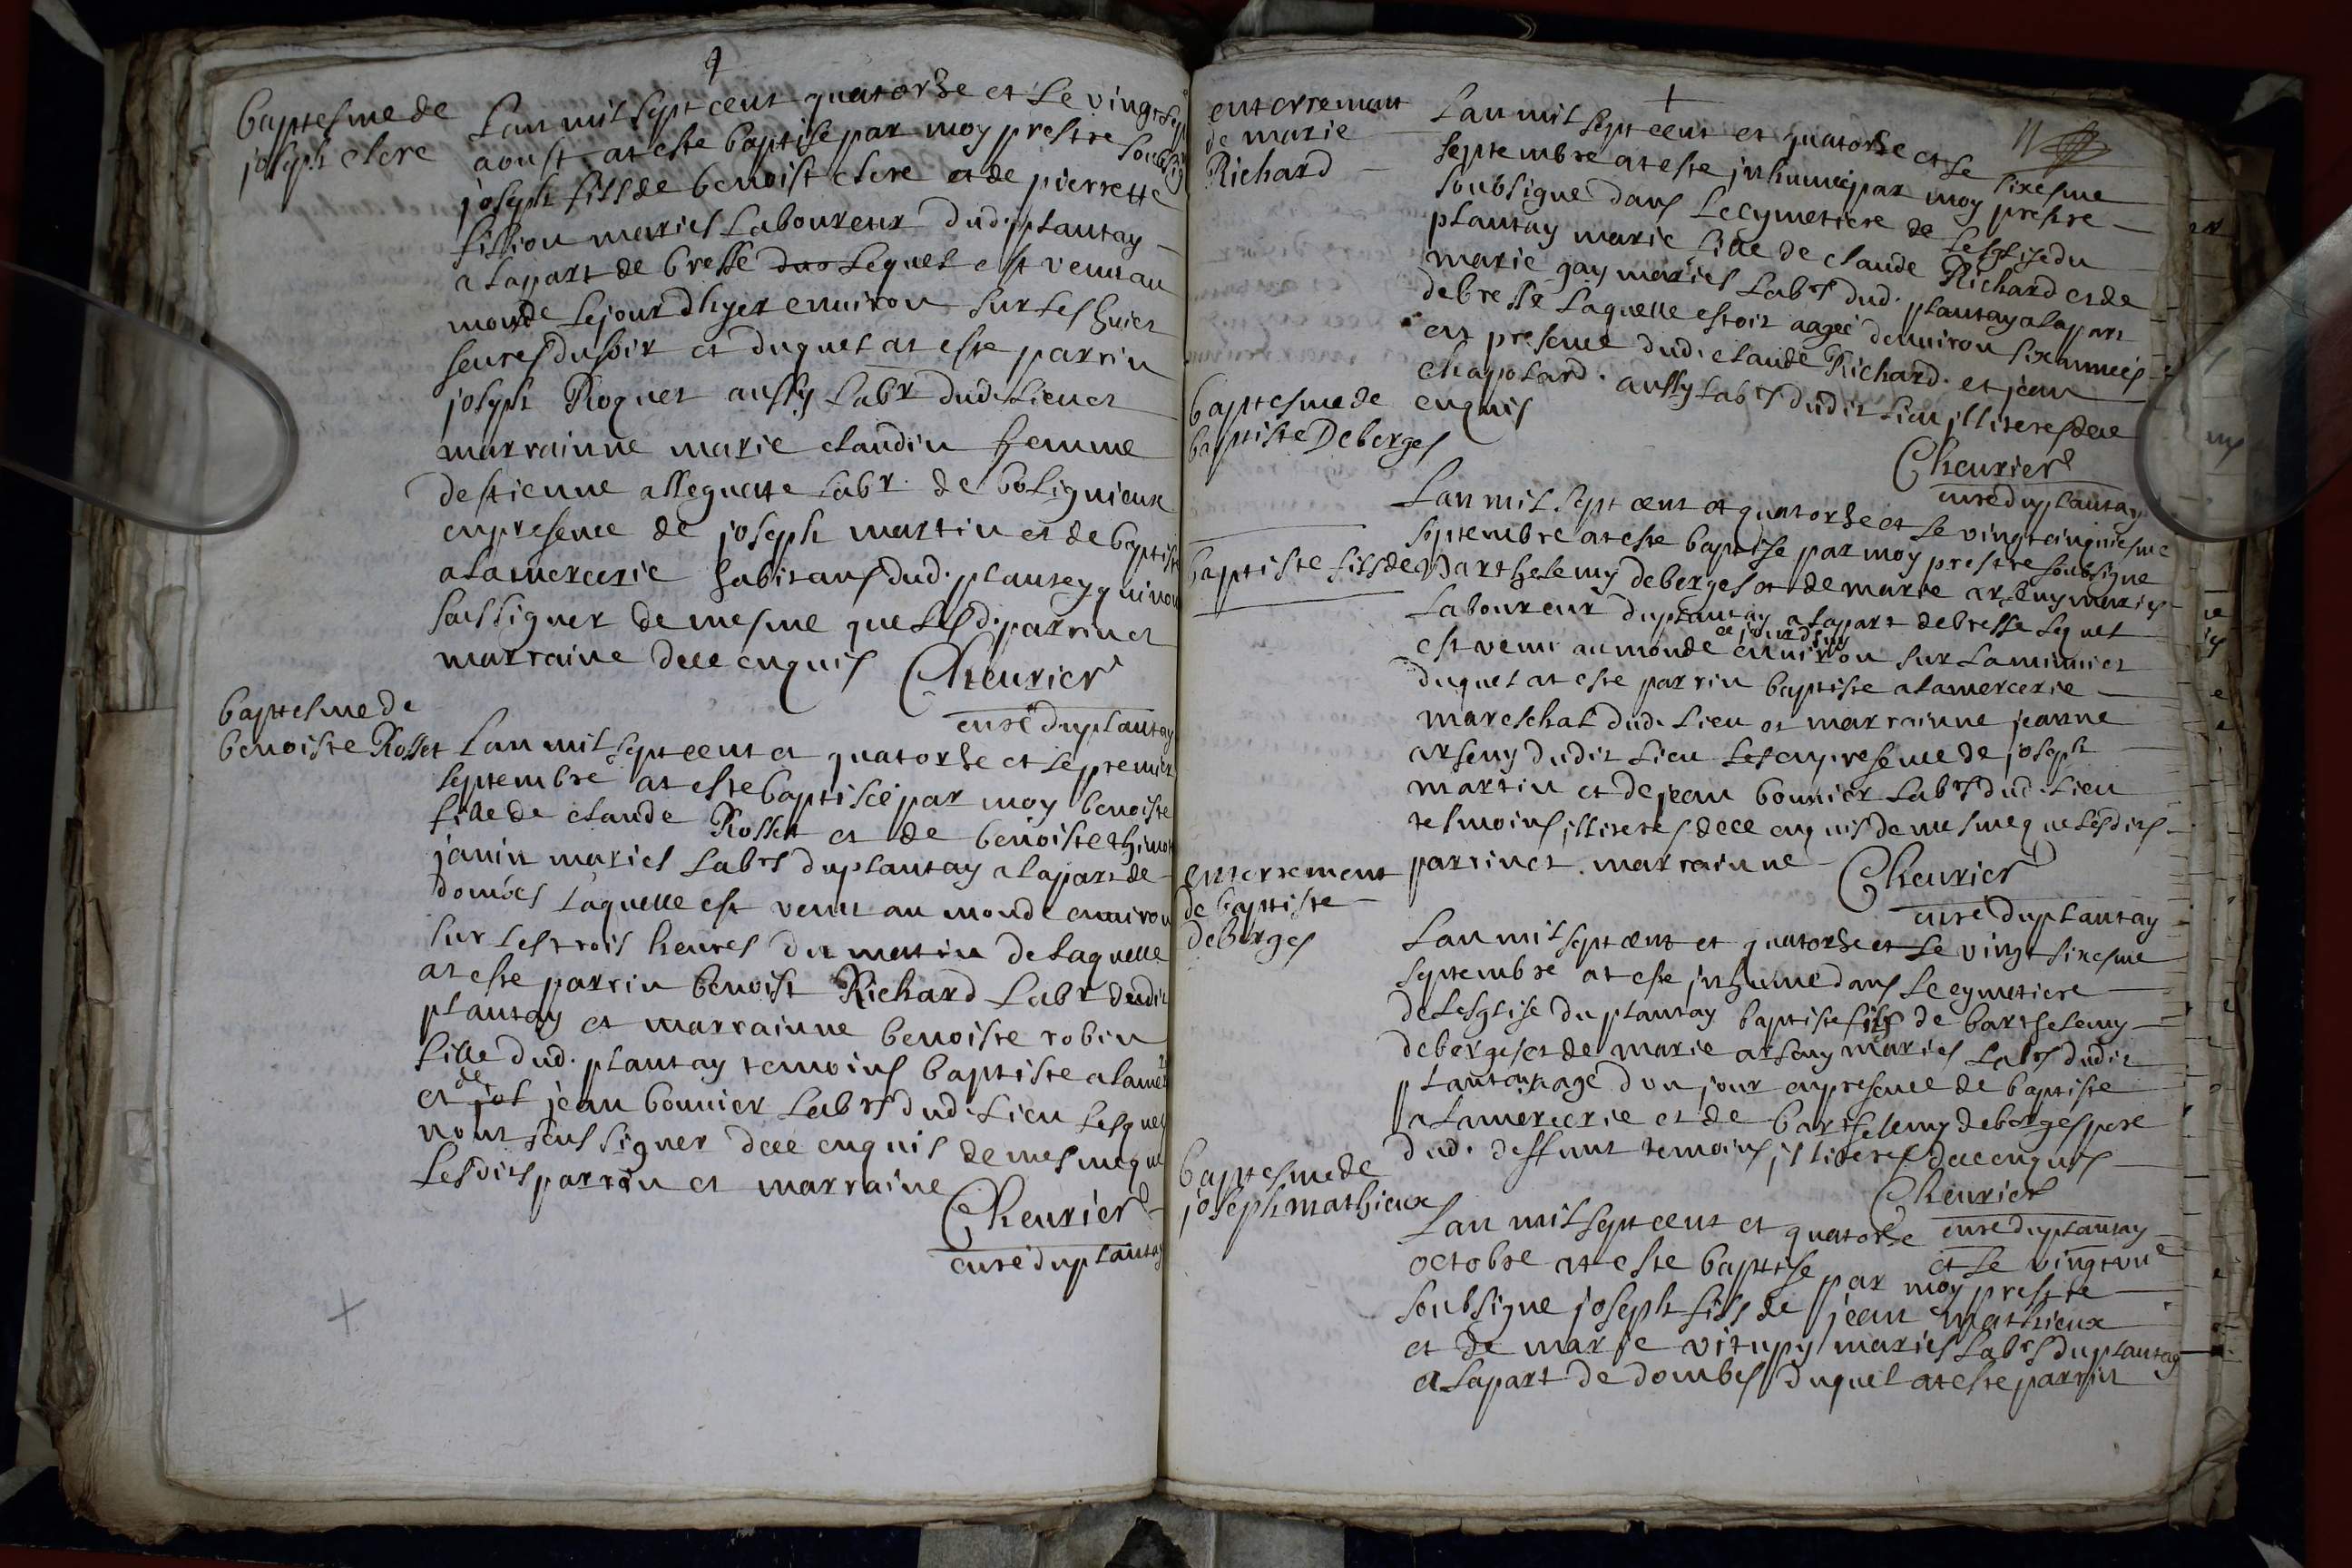 baptesme de
joseph clere
Lan mil sept cent quatorze et le vingt sept
aoust at este baptise par moy prestre soubsig
joseph fils de benoist clere et de pierrette
fillion mariés laboureur dud. plantay
a la part de bresse duo lequel est venu au
monde le jour dhyer environ sur les huict
heures du soir et duquel at este parrin
joseph Roguet aussy labr dud. lieu et
marrainne marie claudin femme
destienne allegnate labr. de bolignieux
en presence de joseph martin et de baptiste
alamercerie habitans dud. plantey qui nont
sceu signer de mesme que lesd. parrin et
marraine dece enquis Cheurier
curé du plantay
baptesme de
benoiste Rosset
Lan mil sept cent et quatorze et le premier
septembre at este baptisée par moy benoiste
fille de claude Rosset et de benoiste thimot
janin mariés labrs du plantay a la part de
dombes laquelle est venu au monde environ
sur les trois heures du matin de laquelle
at este parrin benoist Richard labr dudit
plantay et marrainne benoiste robin
fille dud. plantay temoins baptiste alamer
et de jos jean bonnier labrs dud. lieu lesquels
nont sceus signer dece enquis de mesme que
lesdits parrin et marraine
Cheurier
curé du plantay
11
enterremant
de marie
Richard
Lan mil sept cent et quatorze et le sixesme
septembre at este inhumée par moy prestre
soubsigne dans le cymetiere de lesglise du
plantay marie fille de claude Richard et de
marie gay mariés labrs dud. plantay a la part
de bresse laquelle estoit aagée denviron six années
en presence dud. claude Richard. et jean
chapolard. aussy labrs dudit lieu illiteres dece
enquis
Cheurier
curé du plantay
baptesme de
baptiste Deberges
Lan mil sept cent et quatorze et le vingt cinquiesme
septembre at este baptise par moy prestre soubsigne
baptiste fils de Barthelemy deberges et de marie arseny mariés
laboureur du plantay a la part de bresse lequel
est venu au monde ce jourdhuy environ sur la minuict
duquel at este parrin baptiste alamercerie
mareschal dud. lieu et marrainne jeanne
arseny dudit lieu les en presence de joseph
martin et de jean bonnier labrs dud. lieu
tesmoins illiteres dece enquis de mesme que lesdits
parrin et marrainne Cheurier
curé du plantay
enterrement
de baptiste
deberges
Lan mil sept cent et quatorze et le vingt sixesme
septembre at este inhumé dans le cymetiere
de lesglise du plantay baptiste fils de barthelemy
deberges et de marie arseny mariés labrs dudit
plantay age dun jour en presence de baptiste
alamercerie et de barthelemy deberges pere
dud. deffunt temoins illiteres dece enquis
Cheurier
curé du plantay
baptesme de
joseph mathieux
Lan mil sept cent et quatorze et le vingt une
octobre at este baptise par moy prestre
soubsigne joseph fils de jean mathieux
et de marie vitupy mariés labrs du plantay
a la part de dombes duquel at este parrin